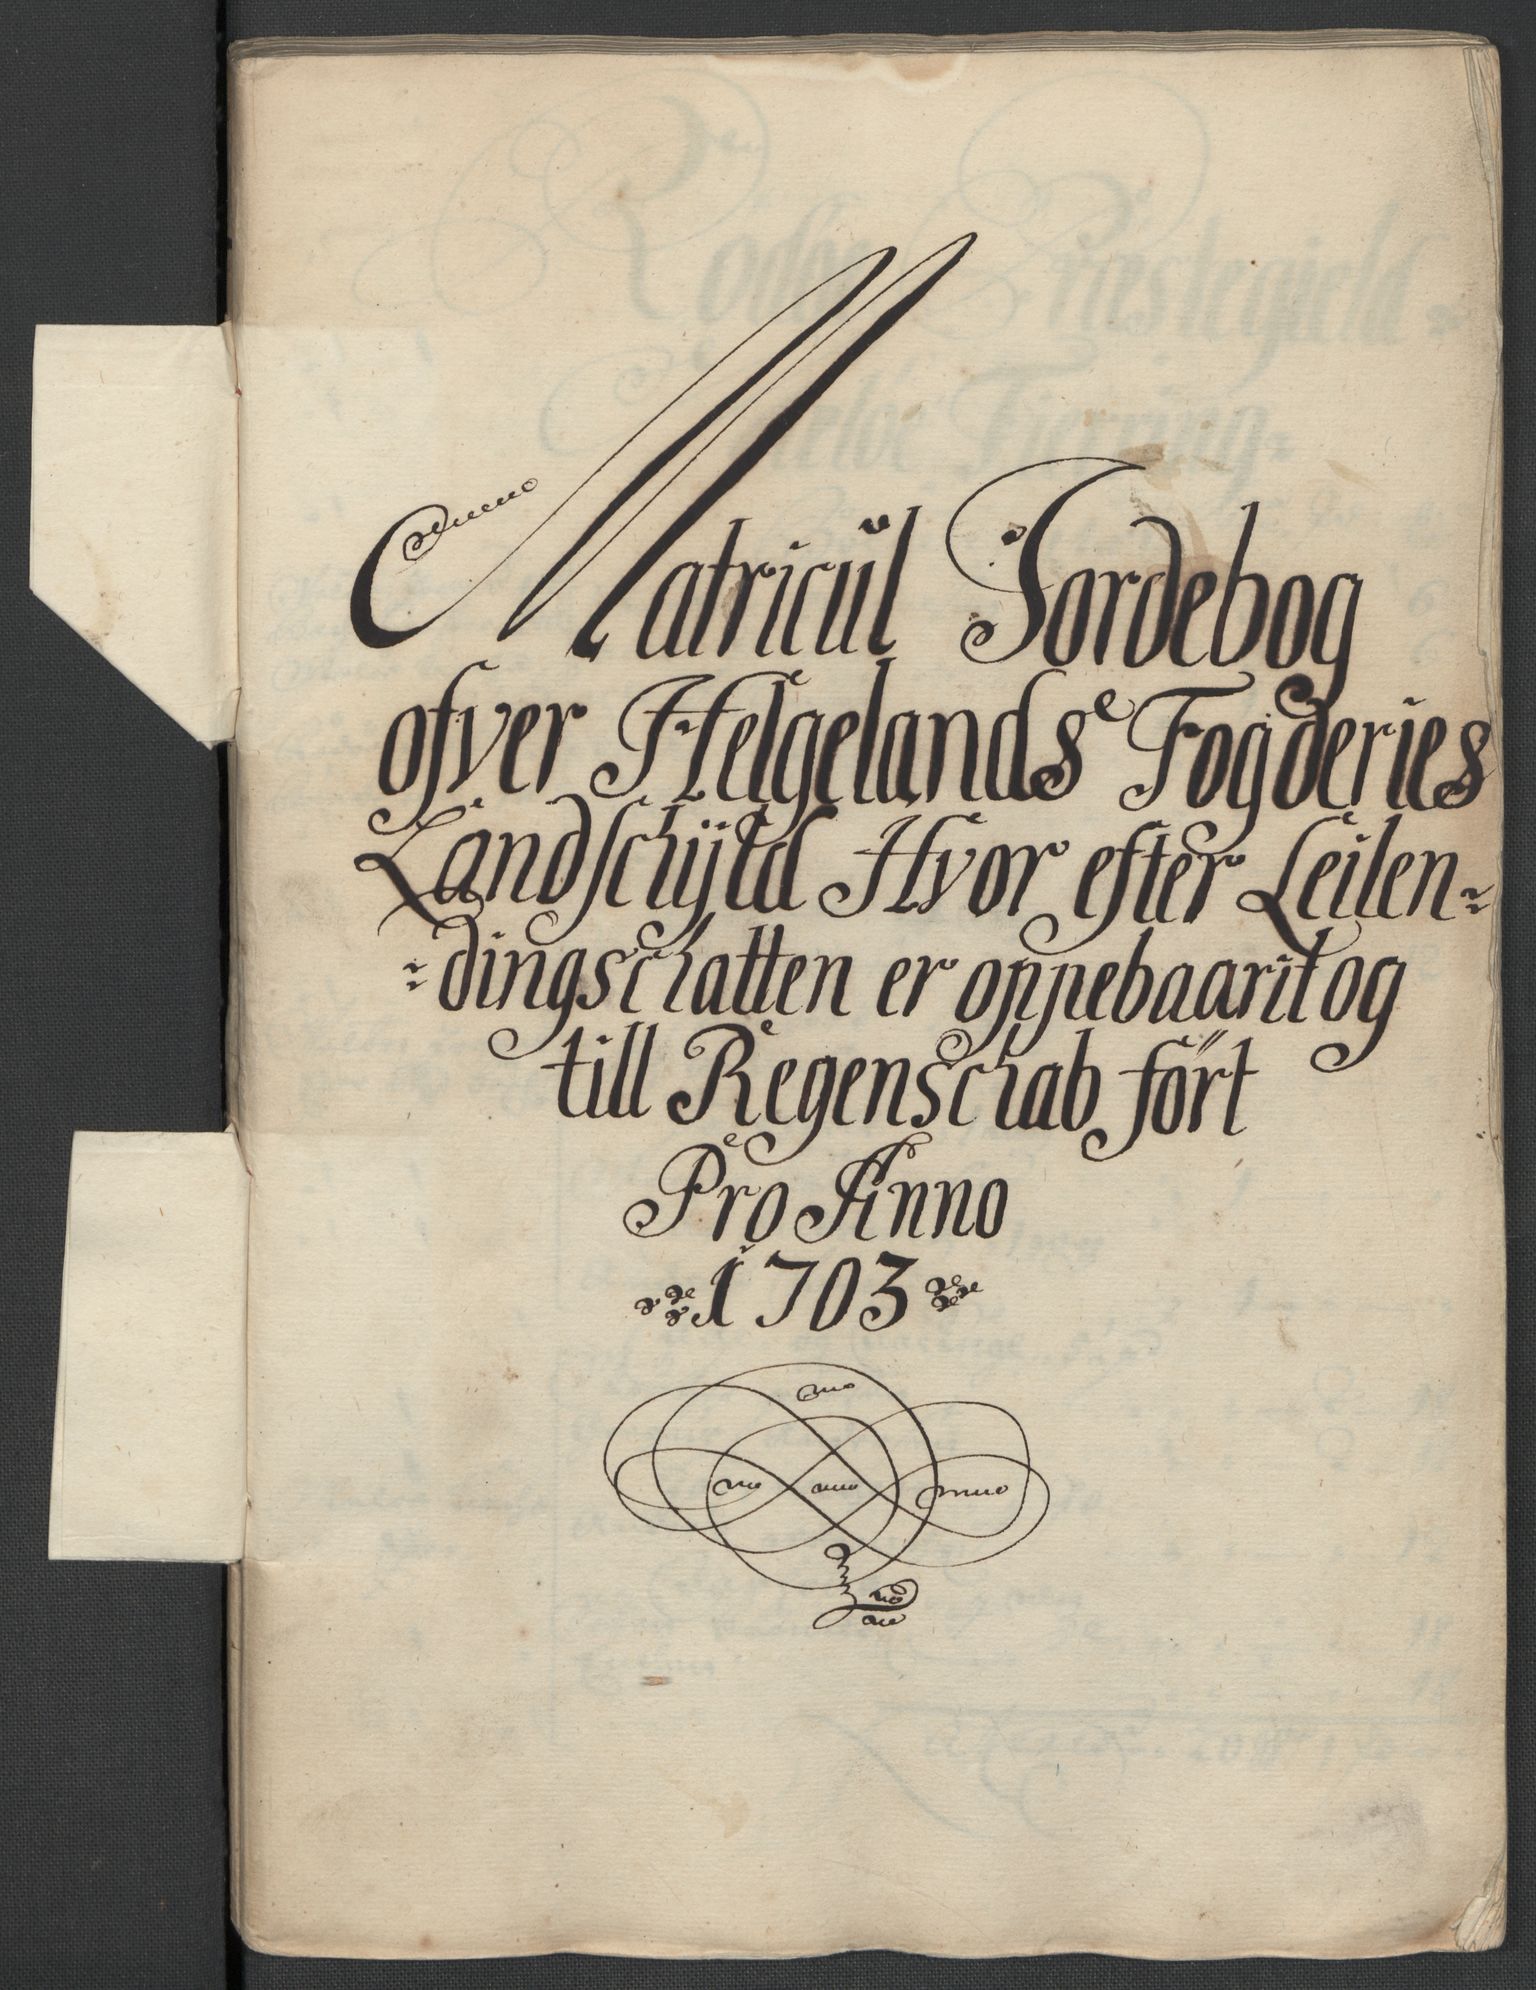 Matricül Jordebog
ofver Helgelands Fogderies
Landschÿld Hvor efter Leilen=
=dingschatten er oppebaarit og
till Regenschab fört
Pro Anno
1703